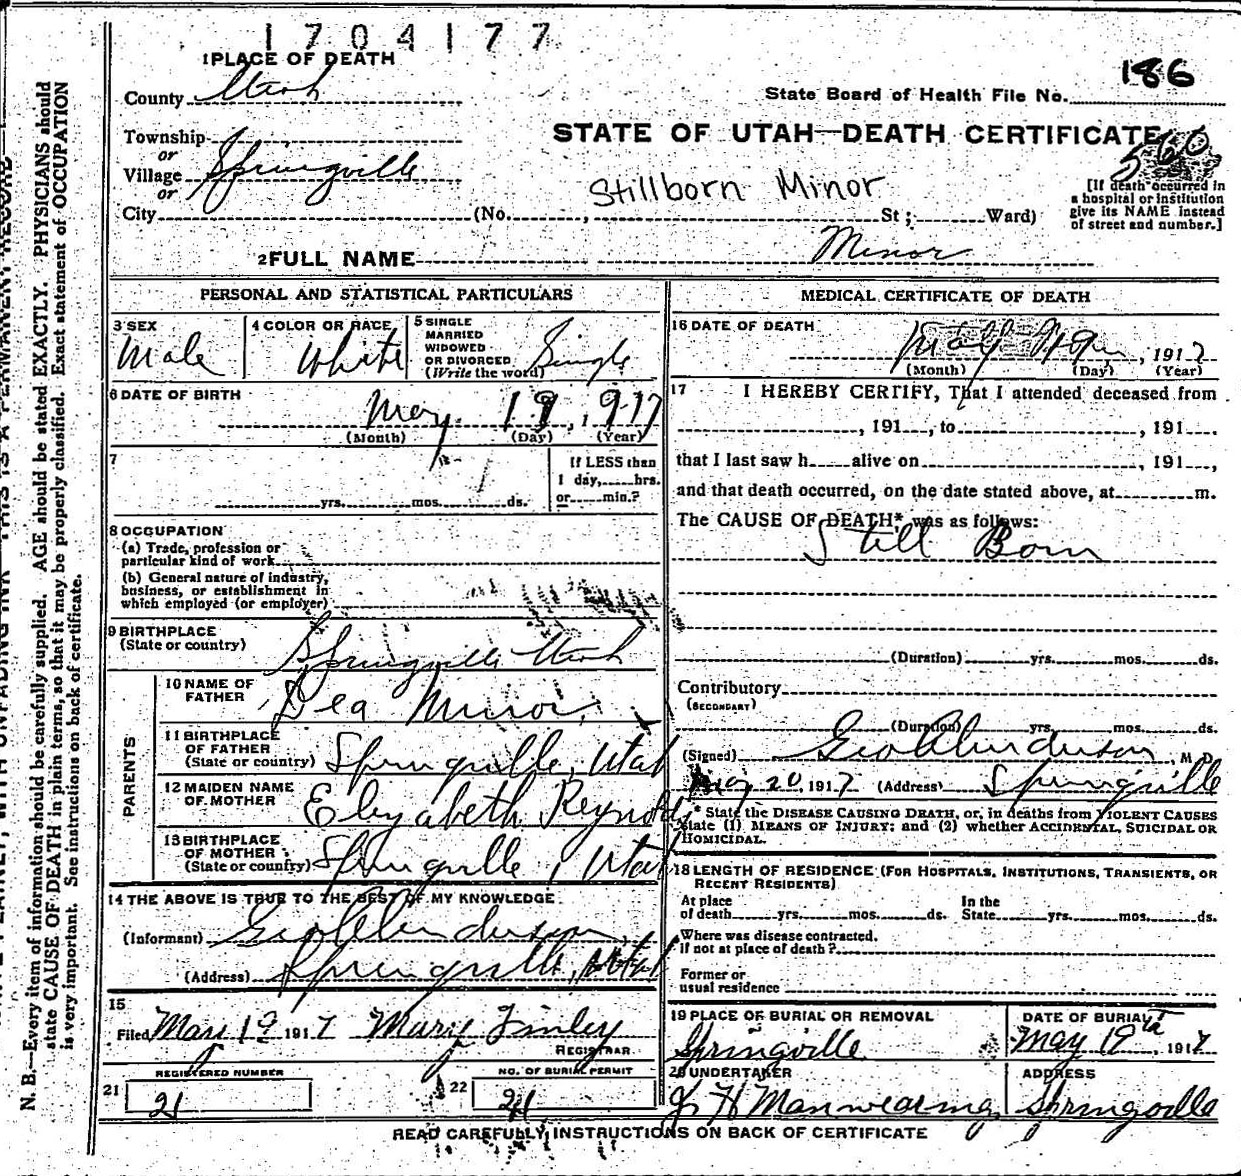 1704177
1 PLACE OF DEATH
186
County Utah
State Board of Health File No.
Township
or
STATE OF UTAH—DEATH CERTIFICATE
560
Village Springville
or
Stillborn Minor
[If death occurred in
a hospital or institution
give its NAME instead
of street and number.]
City (No. , St; Ward)
2 FULL NAME Minor
PERSONAL AND STATISTICAL PARTICULARS
3 SEX
Male
4 COLOR OR RACE
White
5 SINGLE
MARRIED
WIDOWED
OR DIVORCED
(Write the word)
Single
6 DATE OF BIRTH
May 19, 1917
(Month) (Day) (Year)
7
yrs. mos. ds.
If LESS than
1 day, hrs.
or min.?
8 OCCUPATION
(a) Trade, profession or
particular kind of work
(b) General nature of industry,
business, or establishment in
which employed (or employer)
9 BIRTHPLACE
(State or country)
Springville Utah
PARENTS
10 NAME OF
FATHER
Dea Minor
11 BIRTHPLACE
OF FATHER
(State or country)
Springville, Utah
12 MAIDEN NAME
OF MOTHER
Elyzabeth Reynolds
13 BIRTHPLACE
OF MOTHER
(State or country)
Springville, Utah
14 THE ABOVE IS TRUE TO THE BEST OF MY KNOWLEDGE
(Informant) Geo Anderson
(Address) Springville, Utah
15
Filed May 19 1917 Mary Finley
REGISTRAR
REGISTERED NUMBER
21 21
NO. OF BURIAL PERMIT
22 21
MEDICAL CERTIFICATE OF DEATH
16 DATE OF DEATH
May 19, 1917
(Month) (Day) (Year)
17 I HEREBY CERTIFY, That I attended deceased from
, 191 , to , 191 .
that I last saw h alive on , 191 ,
and that death occurred, on the date stated above, at m.
The CAUSE OF DEATH* was as follows:
Still Born
(Duration) yrs. mos. ds.
Contributory
(SECONDARY)
(Duration) yrs. mos. ds.
(Signed) Geo Anderson, M D
May 20, 1917 (Address) Springville
* State the DISEASE CAUSING DEATH, or, in deaths from VIOLENT CAUSES
state (1) MEANS OF INJURY; and (2) whether ACCIDENTAL, SUICIDAL OR
HOMICIDAL.
18 LENGTH OF RESIDENCE (FOR HOSPITALS, INSTITUTIONS, TRANSIENTS, OR
RECENT RESIDENTS)
At place
of death yrs. mos. ds.
In the
State yrs. mos. ds.
Where was disease contracted.
If not at place of death?
Former or
usual residence
19 PLACE OF BURIAL OR REMOVAL
Springville
DATE OF BURIAL
May 19th, 1917
20 UNDERTAKER
J H Manwearing
ADDRESS
Springville
READ CAREFULLY INSTRUCTIONS ON BACK OF CERTIFICATE
N. B.—Every item of information should be carefully supplied. AGE should be stated EXACTLY. PHYSICIANS should
state CAUSE OF DEATH in plain terms, so that it may be properly classified. Exact statement of OCCUPATION
is very important. See instructions on back of certificate.